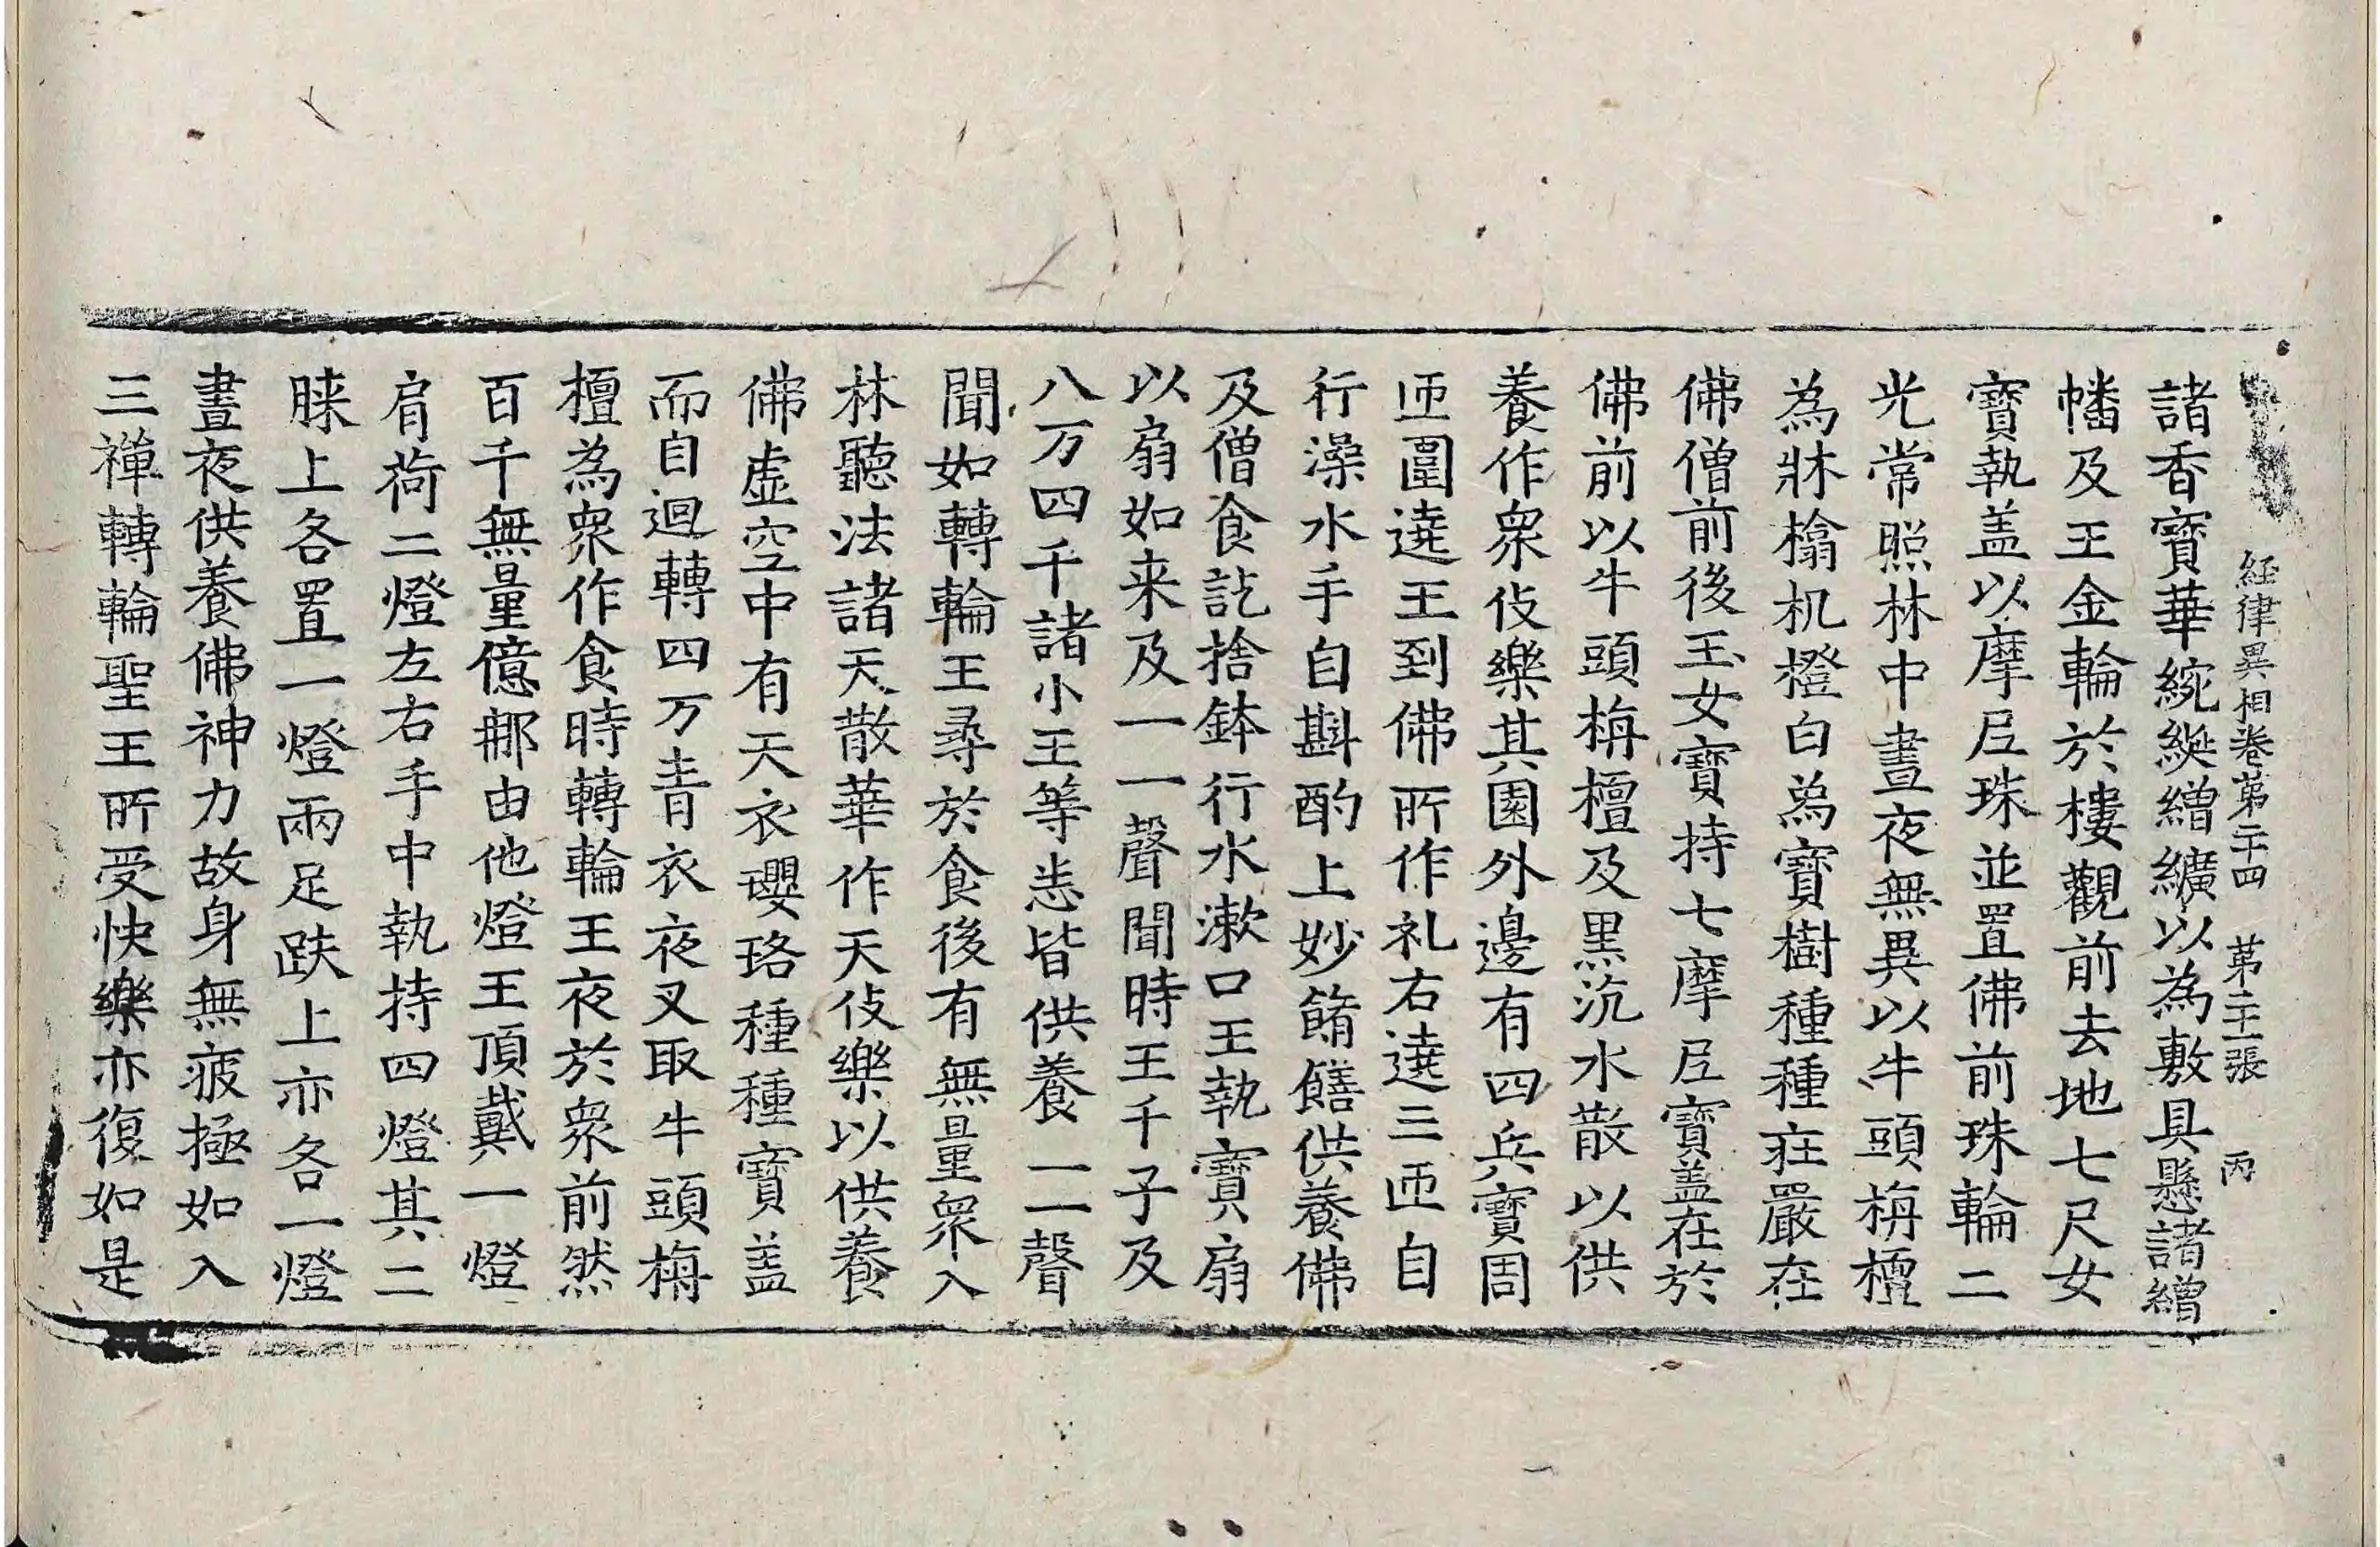 経律異相卷第二十四 第二十一張 丙
諸香寳華綩綖繒纊以為敷具懸諸繒
幡及王金輪於樓觀前去地七尺女
寳執盖以摩尼珠並置佛前珠輪二
光常照林中晝夜無異以牛頭栴檀
為牀榻机橙白為寳樹種種莊嚴在
佛僧前後玉女寳持七摩尼寳盖在於
佛前以牛頭栴檀及黒沉水散以供
養作衆伎樂其園外邊有四兵寳周
迊圍遶王到佛所作礼右遶三迊自
行澡水手自斟酌上妙餚饍供養佛
及僧食訖捨鉢行水漱口王執寳扇
以扇如来及一一聲聞時王千子及
八万四千諸小王等悉皆供養一一聲
聞如轉輪王尋於食後有無量衆入
林聽法諸天散華作天伎樂以供養
佛虚空中有天衣瓔珞種種寳盖
而自迴轉四万青衣夜叉取牛頭栴
檀為衆作食時轉輪王夜於衆前然
百千無量億那由他燈王頂戴一燈
肩荷二燈左右手中執持四燈其二
䏶上各置一燈兩足趺上亦各一燈
晝夜供養佛神力故身無疲極如入
三禪轉輪聖王所受快樂亦復如是